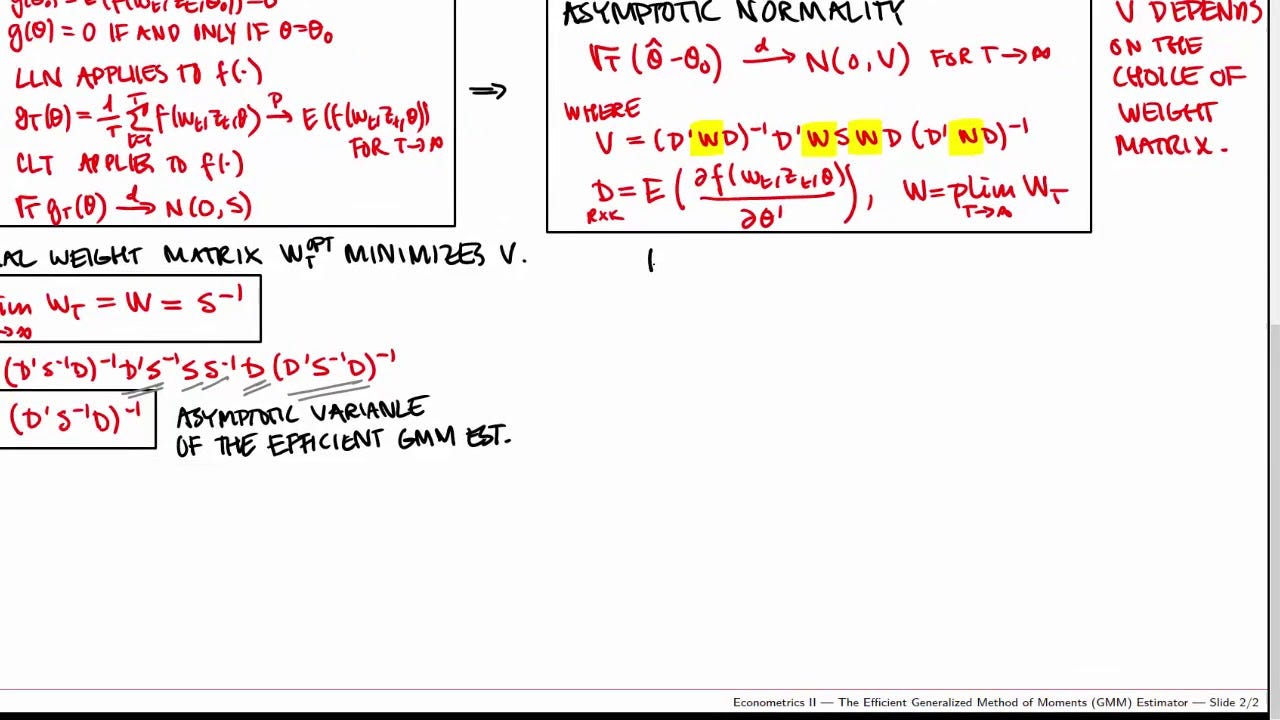 g(θ) = 0 IF AND ONLY IF θ=θ₀
LLN APPLIES TO f(·)
g_T(θ) = 1/T Σ_{t=1}^{T} f(w_t, z_t, θ) →p E(f(w_t, z_t, θ))
FOR T→∞
CLT APPLIES TO f(·)
√T g_T(θ) →d N(0, S)
⇒
ASYMPTOTIC NORMALITY
√T (θ̂ - θ₀) →d N(0, V) FOR T→∞
WHERE
V = (D'WD)⁻¹ D'WSWD (D'WD)⁻¹
D = E(∂f(w_t, z_t, θ)/∂θ'), W = plim W_T
R×K T→∞
V DEPENDS
ON THE
CHOICE OF
WEIGHT
MATRIX.
AL WEIGHT MATRIX W_T^OPT MINIMIZES V.
im W_T = W = S⁻¹
→∞
(D'S⁻¹D)⁻¹D'S⁻¹SS⁻¹D(D'S⁻¹D)⁻¹
(D'S⁻¹D)⁻¹
ASYMPTOTIC VARIANCE
OF THE EFFICIENT GMM EST.
Econometrics II — The Efficient Generalized Method of Moments (GMM) Estimator — Slide 2/2